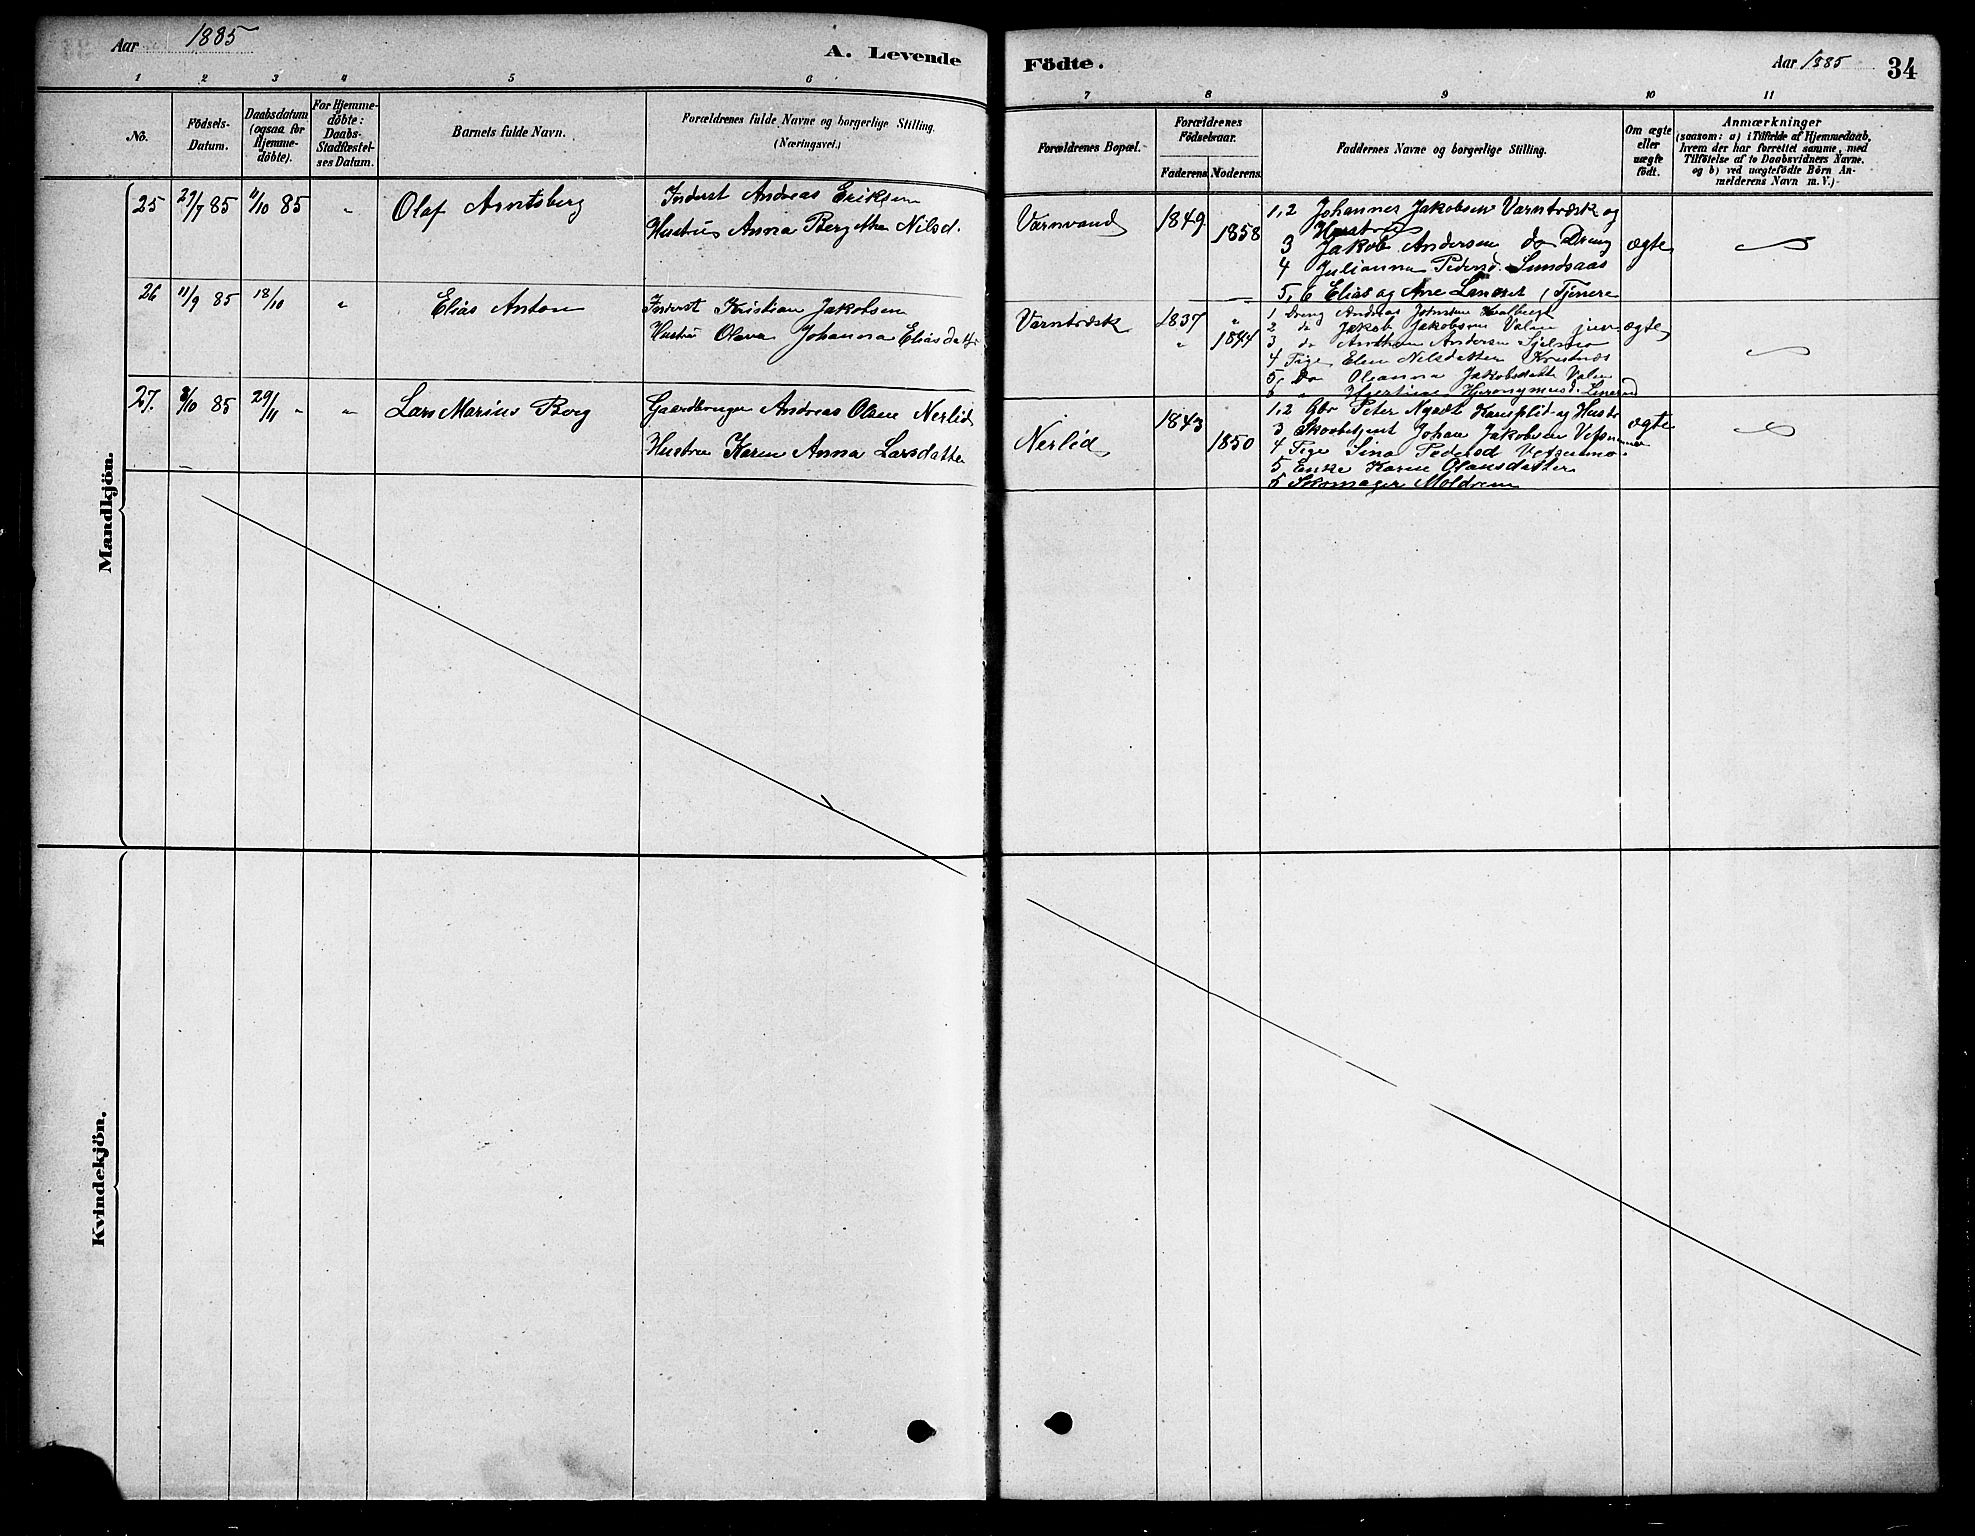 Aar 1885
A. Levende
Födte.
Aar 1885
34
1 2 3 4 5 6
7 8 9 10 11
No.
Födsels-
Datum.
Daabsdatum
(ogsaa for
Hjemme-
döbte).
For Hjemme-
döbte:
Daabs-
Stadfæstel-
ses Datum.
Barnets fulde Navn.
Forældrenes fulde Navne og borgerlige Stilling.
(Næringsvei.)
Forældrenes Bopæl.
Forældrenes
Födselsaar.
Faderens
Moderens.
Faddernes Navne og borgerlige Stilling.
Om ægte
eller
uægte
födt.
Anmærkninger
(saasom: a) i Tilfælde af Hjemmedaab,
hvem der har forrettet samme, med
Tilföielse af to Daabsvidners Navne.
og b) ved uægtefödte Börn An-
melderens Navn m. V.)
Mandkjön.
25 29/7 85 11/10 85 " Olaf Arntsberg
Inderst Andreas Eriksen
Hustru Anna Bergitha Nilsd.
Varnvand 1849 1858
1,2 Johannes Jakobsen Varntræsk og
Hustru
3 Jakob Andersen do Dreng
4 Julianna Pedersd. Sundsaas
5, 6 Elias og Ane / Tjenere
ægte
26 11/9 85 18/10 " Elias Anton
Inderst Kristian Jakobsen
Hustru Olava Johanna Eliasdatter
Varntræsk 1837 "
" 1844
1 Dreng Andreas Johnsen
2 do Jakob Jakobsen Valen jun
3 do Andersen
4 Pige Elen Nilsdatter
5, Do Oleanna Jakobsdatt Valen
6 " Hieronymusd.
ægte
27. 8/10 85 29/11 " " Lars Marius Borg
Gaardbruger Andreas Olsen Nerlid
Hustru Karen Anna Larsdatter
Nerlid 1843 1850
1,2 Gbr Peter og Hustr
3 Skovbetjent Johan Jakobsen
4 Pige Sina Pedersd
5, Enke Karen Olausdatter
6 Skomager Moldrem
ægte
Kvindekjön.